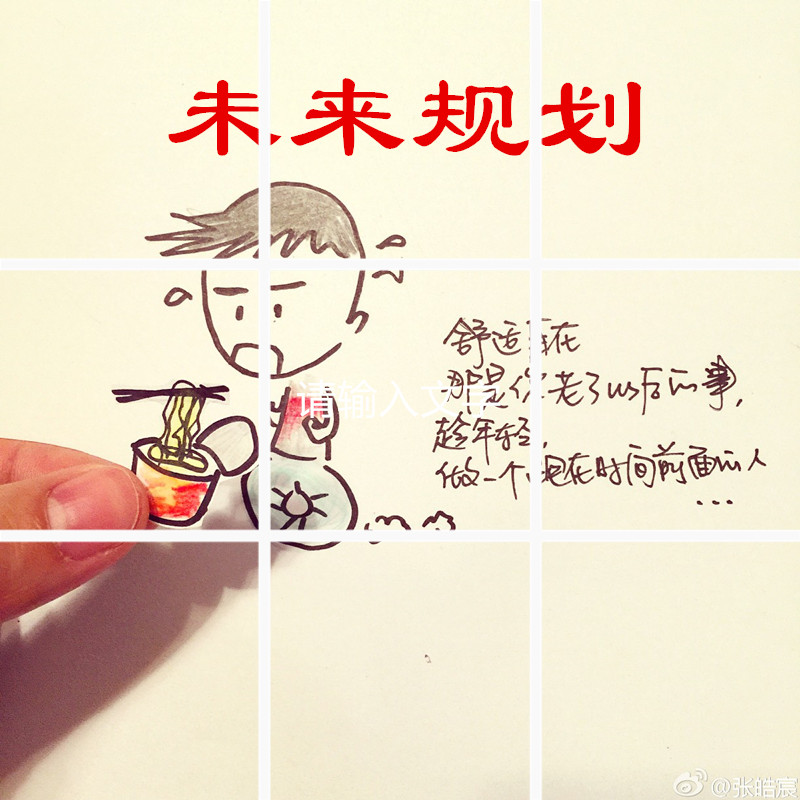 未来规划
舒适自在
那是你老了以后的事，
趁年轻，
做一个跑在时间前面的人
...
请输入文字
@张皓宸